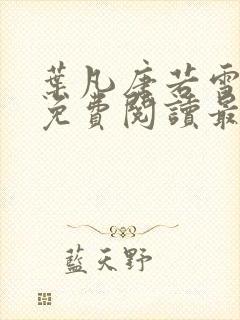 葉凡唐若雪
免費閱讀最
藍天野